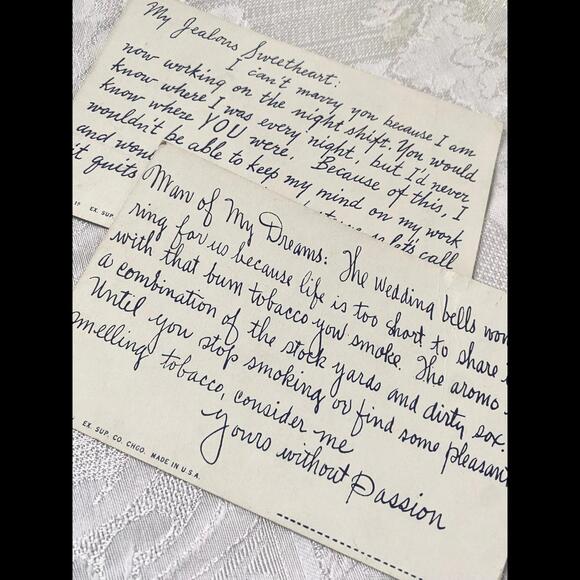 My Jealous Sweetheart:
I can't marry you because I am
now working on the night shift. You would
know where I was every night, but I'd never
know where YOU were. Because of this, I
wouldn't be able to keep my mind on my work
and so let's call
it quits
EX. SUP.
Man of My Dreams: The wedding bells won
ring for us because life is too short to share
with that bum tobacco you smoke. The aromo -
a combination of the stock yards and dirty sox.
Until you stop smoking or find some pleasant
smelling tobacco, consider me
Yours without Passion
EX. SUP. CO. CHGO. MADE IN U.S.A.